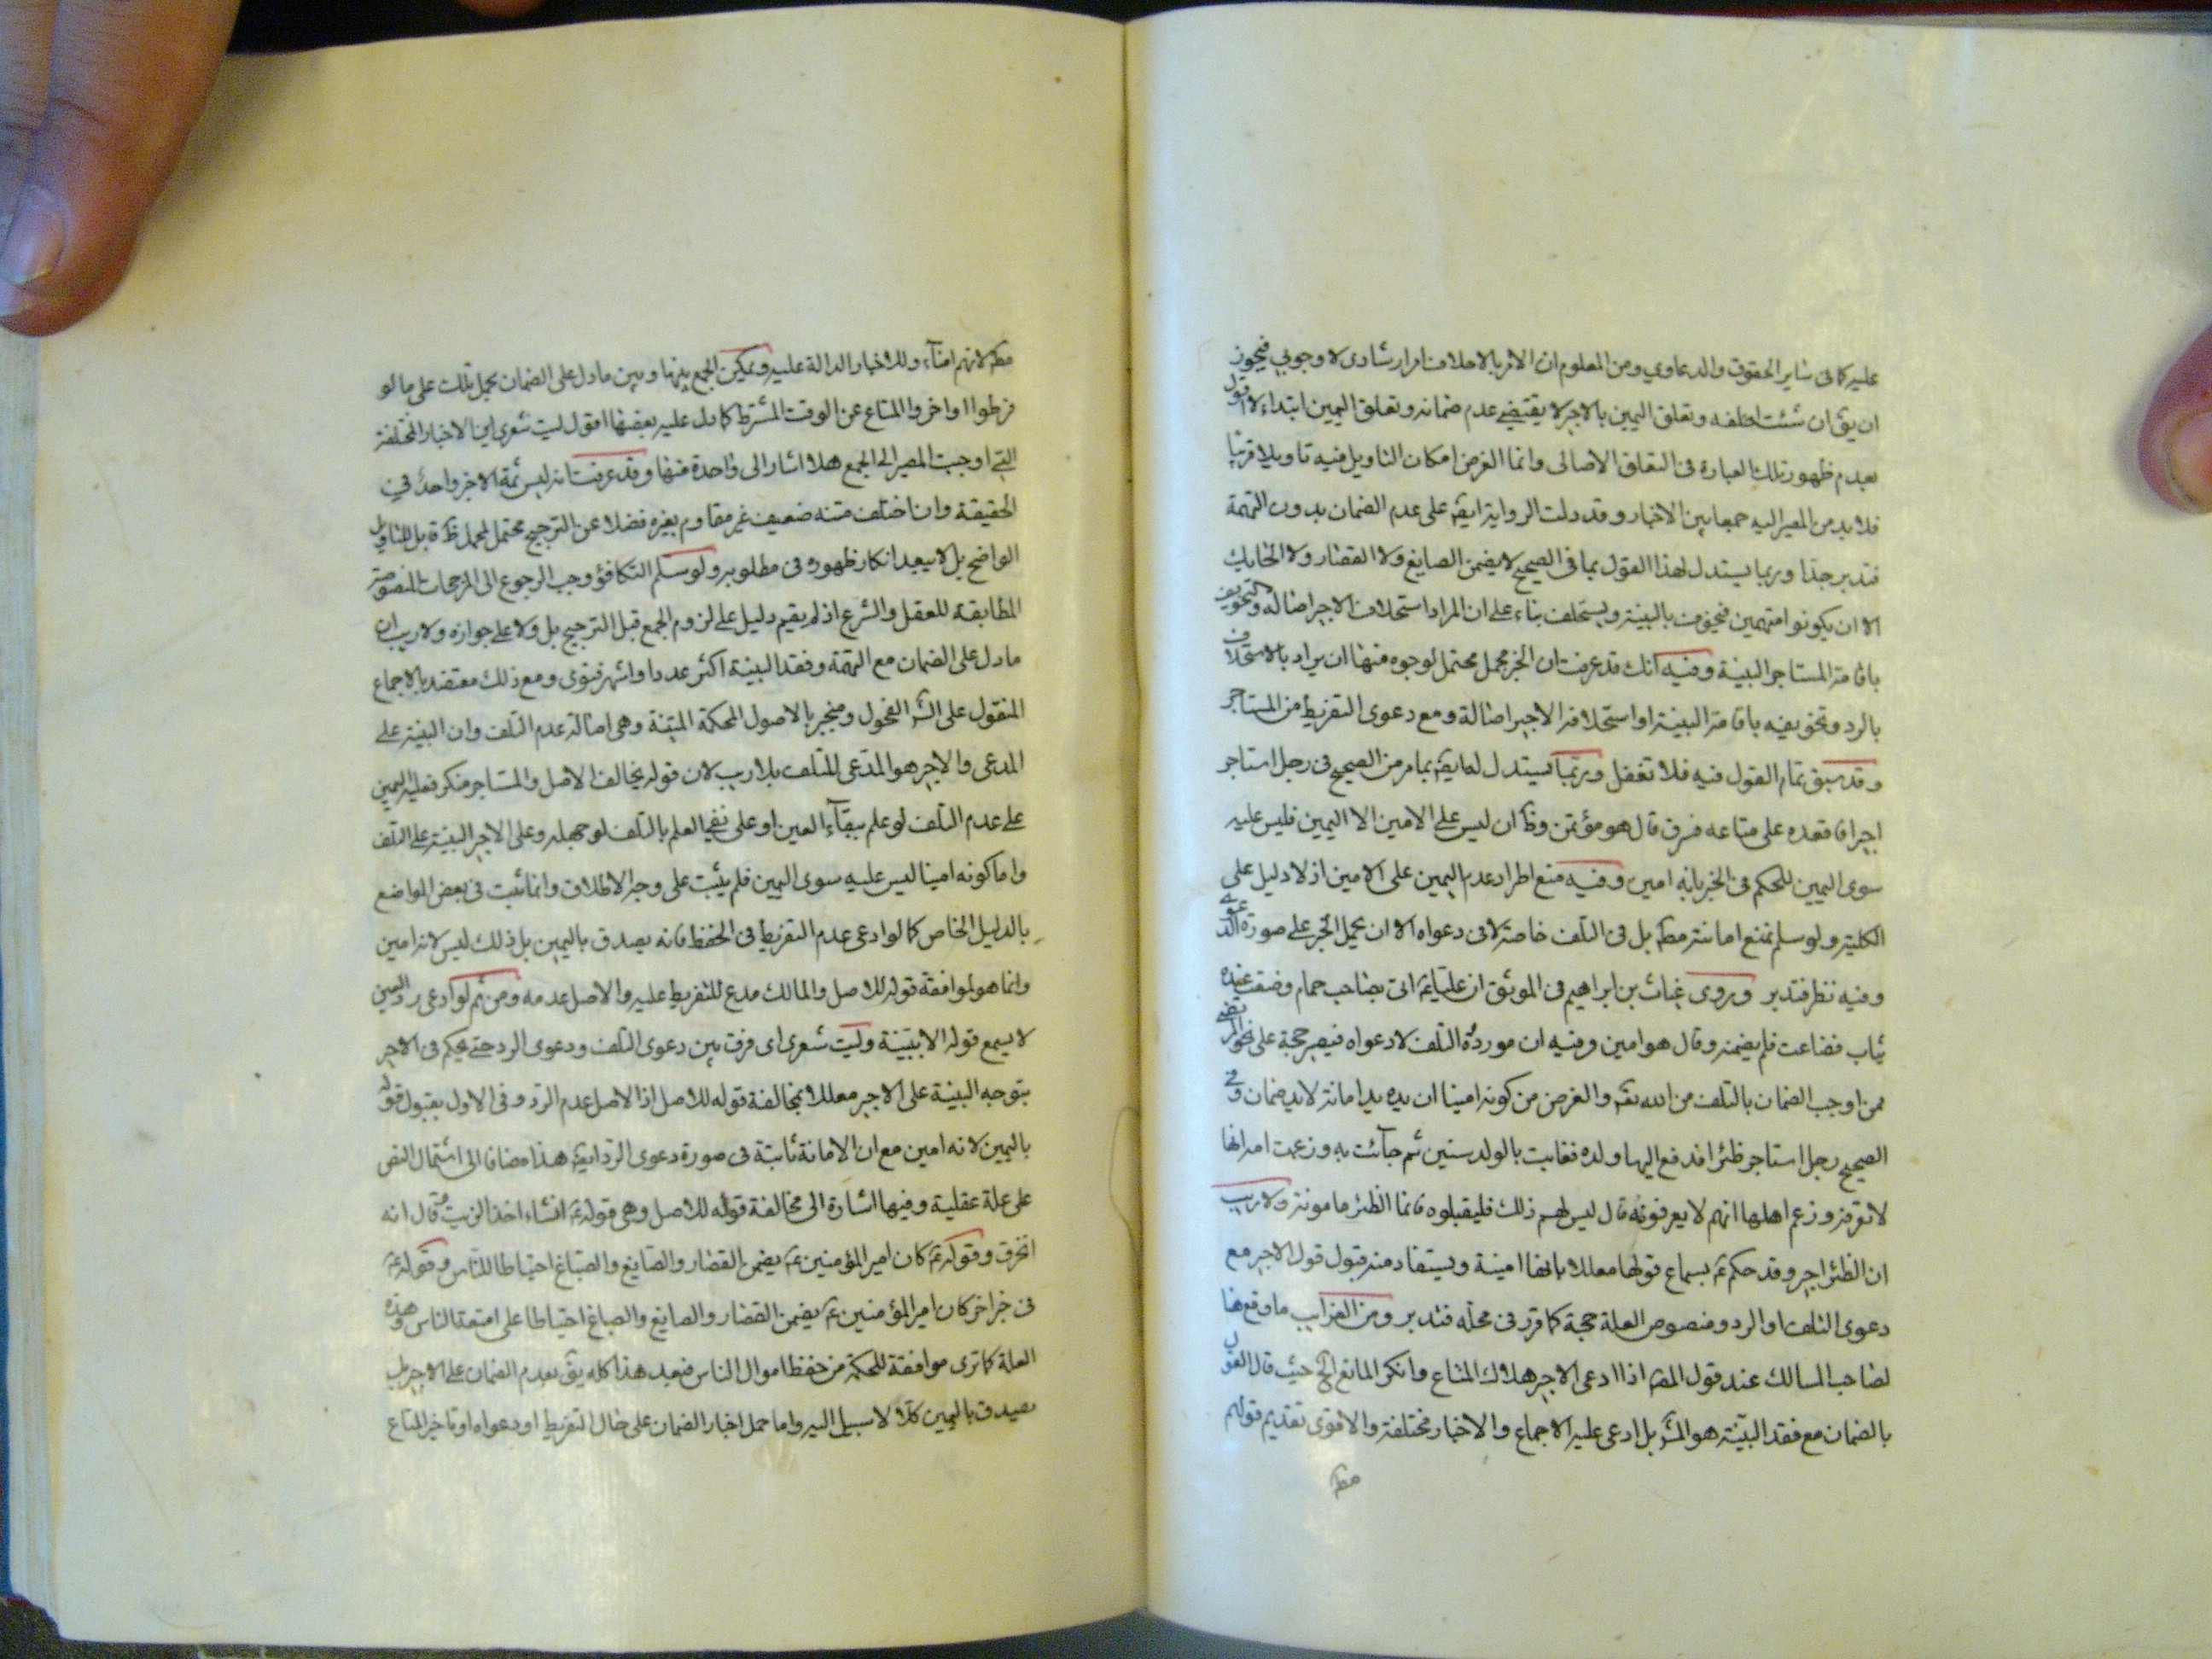 عليه كما في ساير الحقوق والدعاوي ومن المعلوم ان الامر بالاحلاف امر ارشادى لا وجوبى فيجوز
ان يق ان شئت احلفه وتعلق اليمين بالاجير لا يقتضي عدم ضمانه وتعلق اليمين ابتداء لا اقول
بعدم ظهور تلك العبارة فى التعلق الاصالى وانما الغرض امكان التاويل فيه تاويلا قريبا
فلا بد من المصير اليه جمعا بين الاخبار وقد دلت الرواية ايضا على عدم الضمان بدون التهمة
فتدبر جدا وربما يستدل لهذا القول بما فى الصحيح لا يضمن الصايغ ولا القصار ولا الحايك
الا ان يكونوا متهمين فيخوف بالبينة ويستحلف بناء على ان المراد استحلاف الاجير اصالة وتخويفه
باقامة المستاجر البينة وفيه انك قد عرفت ان الخبر مجمل محتمل لوجوه منها ان يراد بالاستحلاف
بالرد وتخويفه باقامة البينة او استحلافه الاجير اصالة ومع دعوى التفريط من المستاجر
وقد سبق تمام القول فيه فلا تغفل وربما يستدل له ايضا بما مر من الصحيح فى رجل استاجر
اجيرا فاقعده على متاعه فسرق قال هو مؤتمن وظ ان ليس على الامين الا اليمين فليس عليه
سوى اليمين للحكم فى الخبر بانه امين وفيه منع اطراد عدم اليمين على الامين اذ لا دليل على
الكلية ولو سلم نمنع امانته مط بل فى التلف خاصة لا فى دعواه الا ان يحمل الخبر على صورة الدعوى
وفيه نظر فتدبر وروى غياث بن ابراهيم فى الموثق ان عليا ع اتى بصاحب حمام وضعت عنده
ثياب فضاعت فلم يضمنه وقال هو امين وفيه ان مورده التلف لا دعواه فيصير حجة على نحو المرتضى
ممن اوجب الضمان بالتلف من الله تعه والغرض من كونه امينا ان يده يد امانة لا يد ضمان وفى
الصحيح رجل استاجر ظئرا فدفع اليها ولده فغابت بالولد سنين ثم جائت به وزعمت امه انها
لا تعرفه وزعم اهلها انهم لا يعرفونه قال ليس لهم ذلك فليقبلوه فانما الظئر مامونة ولا ريب
ان الظئر اجير وقد حكم ع بسماع قولها معللا بانها امينة ويستفاد منه قبول قول الاجير مع
دعوى التلف او الرد ومنصوص العلة حجة كما قرر فى محله فتدبر ومن الغرايب ما وقع هنا
لصاحب المسالك عند قول المص اذا ادعى الاجير هلاك المتاع وانكر المالك الخ حيث قال القول
بالضمان مع فقد البينة هو المش بل ادعى عليه الاجماع والاخبار مختلفة والاقوى تقديم قولهم
مط
مط لانهم امناء وللاخبار الدالة عليه ويمكن الجمع بينها وبين ما دل على الضمان بحمل تلك على ما لو
فرطوا او اخروا المتاع عن الوقت المشترط كما دل عليه بعضها اقول ليت شعرى اين الاخبار المختلفة
التى اوجبت المصير الى الجمع هلا اشار الى واحدة منها وقد عرفت انه ليس ثمة الا خبر واحد فى
الحقيقة وان اختلف متنه ضعيف غير مقاوم بغيره فضلا عن الترجيح محتمل لمحمل ظ قابل للتاويل
الواضح بل لا يبعد انكار ظهوره فى مطلوبه ولو سلم التكافؤ وجب الرجوع الى المرجحات المنصوصة
المطابقة للعقل والشرع اذ لم يقم دليل على لزوم الجمع قبل الترجيح بل ولا على جوازه ولا ريب ان
ما دل على الضمان مع التهمة وفقد البينة اكثر عددا واشهر فتوى ومع ذلك معتضد بالاجماع
المنقول على الش الفحول ومنجبر بالاصول المحكمة المتقنة وهى اصالة عدم التلف وان البينة على
المدعى والاجير هو المدعى للتلف بلا ريب لان قوله يخالف الاصل والمستاجر منكر فعليه اليمين
على عدم التلف لو علم ببقاء العين او على نفى العلم بالتلف لو جهله وعلى الاجير البينة على التلف
واما كونه امينا ليس عليه سوى اليمين فلم يثبت على وجه الاطلاق وانما ثبت فى بعض المواضع
بالدليل الخاص كما لو ادعى عدم التفريط فى الحفظ فانه يصدق باليمين بل ذلك ليس لانه امين
وانما هو لموافقة قوله للاصل والمالك مدع للتفريط عليه والاصل عدمه ومن ثم لو ادعى رد العين
لا يسمع قوله الا ببينة وليت شعرى اى فرق بين دعوى التلف ودعوى الرد حتى يحكم فى الاخير
بتوجه البينة على الاجير معللا بمخالفة قوله للاصل اذ الاصل عدم الرد وفى الاول بقبول قوله
باليمين لانه امين مع ان الامانة ثابتة فى صورة دعوى الرد ايضا هذا مضافا الى اشتمال النص
على علة عقلية وفيها اشارة الى مخالفة قوله للاصل وهى قوله ع انشاء اخذ الزيت وقال انه
انخرق وقوله ع كان امير المؤمنين ع يضمن القصار والصايغ والصباغ احتياطا للناس وقوله ع
فى خبر اخر كان امير المؤمنين ع يضمن القصار والصايغ والصباغ احتياطا على امتعة الناس وهذه
العلة كما ترى موافقة للحكمة من حفظ اموال الناس فبعد هذا كله يق بعدم الضمان على الاجير بل
يصدق باليمين كلا لا سبيل اليه واما حمل اخبار الضمان على حال التفريط او دعواه او تاخير المتاع